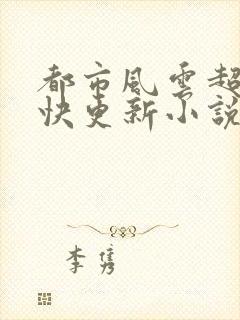 都市風雲超
快更新小說
李隽